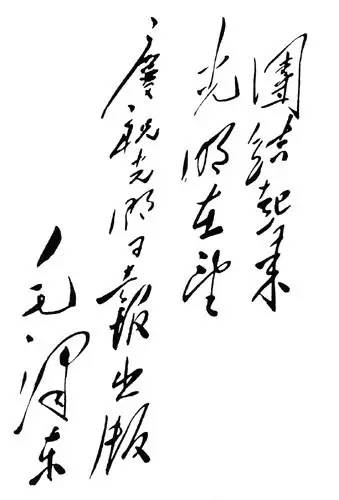 團结起来
光明在望
庆祝光明日報出版
毛泽东